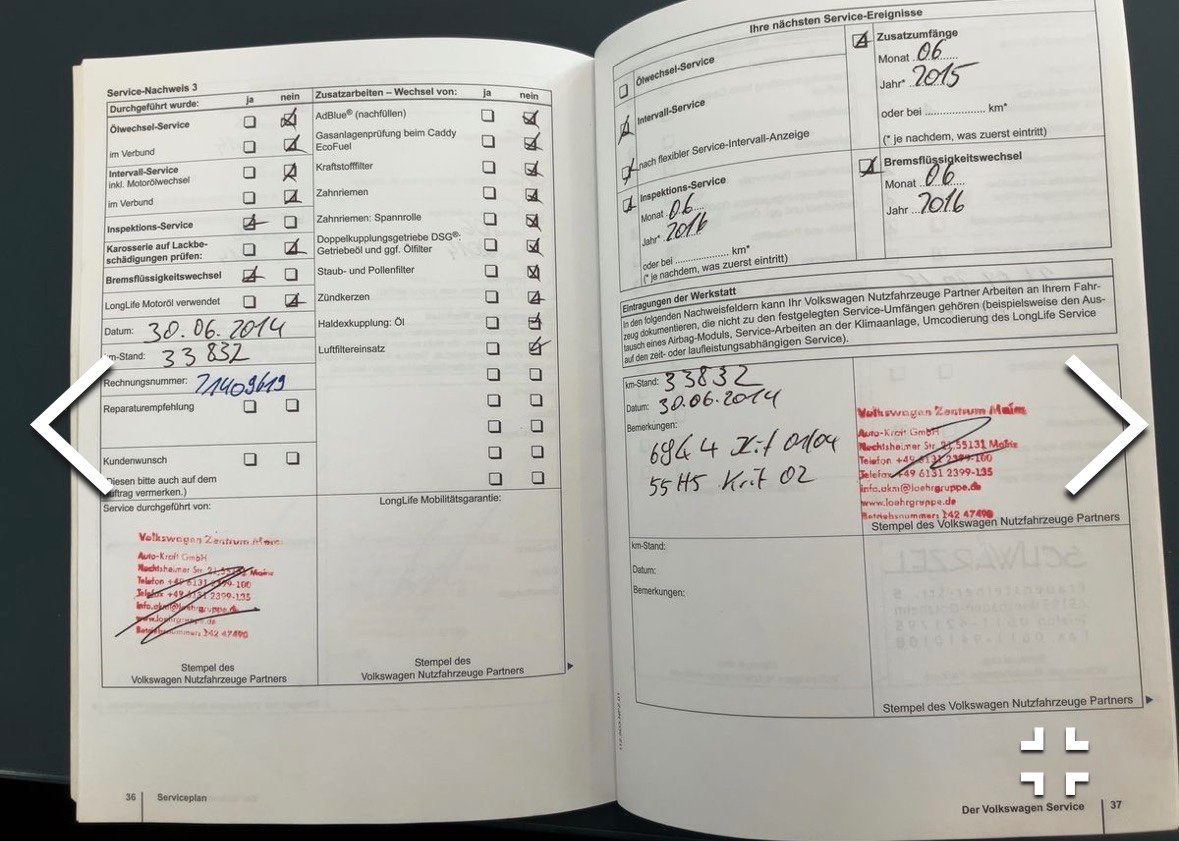 Service-Nachweis 3
Durchgeführt wurde: ja nein
Ölwechsel-Service
im Verbund
Intervall-Service
inkl. Motorölwechsel
im Verbund
Inspektions-Service
Karosserie auf Lackbe-
schädigungen prüfen:
Bremsflüssigkeitswechsel
LongLife Motoröl verwendet
Datum: 30.06.2014
km-Stand: 33832
Rechnungsnummer: 71409619
Reparaturempfehlung
Kundenwunsch
(Diesen bitte auch auf dem
Auftrag vermerken.)
Service durchgeführt von:
Volkswagen Zentrum Mainz
Auto-Kraft GmbH
Rechtsheimer Str. 21, 55131 Mainz
Telefon +49 6131 2399-100
Telefax +49 6131 2399-135
info.akm@loehrgruppe.de
www.loehrgruppe.de
Betriebsnummer: 242 47490
Stempel des
Volkswagen Nutzfahrzeuge Partners
Zusatzarbeiten – Wechsel von: ja nein
AdBlue® (nachfüllen)
Gasanlagenprüfung beim Caddy
EcoFuel
Kraftstofffilter
Zahnriemen
Zahnriemen: Spannrolle
Doppelkupplungsgetriebe DSG®:
Getriebeöl und ggf. Ölfilter
Staub- und Pollenfilter
Zündkerzen
Haldexkupplung: Öl
Luftfiltereinsatz
LongLife Mobilitätsgarantie:
Stempel des
Volkswagen Nutzfahrzeuge Partners
36 Serviceplan
Ihre nächsten Service-Ereignisse
Ölwechsel-Service
Intervall-Service
nach flexibler Service-Intervall-Anzeige
Inspektions-Service
Monat 06
Jahr* 2016
oder bei .................... km*
(* je nachdem, was zuerst eintritt)
Zusatzumfänge
Monat 06
Jahr* 2015
oder bei .................... km*
(* je nachdem, was zuerst eintritt)
Bremsflüssigkeitswechsel
Monat 06
Jahr 2016
Eintragungen der Werkstatt
In den folgenden Nachweisfeldern kann Ihr Volkswagen Nutzfahrzeuge Partner Arbeiten an Ihrem Fahr-
zeug dokumentieren, die nicht zu den festgelegten Service-Umfängen gehören (beispielsweise den Aus-
tausch eines Airbag-Moduls, Service-Arbeiten an der Klimaanlage, Umcodierung des LongLife Service
auf den zeit- oder laufleistungsabhängigen Service).
km-Stand: 33832
Datum: 30.06.2014
Bemerkungen:
69G4 Krit 01/04
55H5 Krit 02
Volkswagen Zentrum Mainz
Auto-Kraft GmbH
Rechtsheimer Str. 21, 55131 Mainz
Telefon +49 6131 2399-100
Telefax +49 6131 2399-135
info.akm@loehrgruppe.de
www.loehrgruppe.de
Betriebsnummer: 242 47490
Stempel des Volkswagen Nutzfahrzeuge Partners
km-Stand:
Datum:
Bemerkungen:
Stempel des Volkswagen Nutzfahrzeuge Partners
Der Volkswagen Service 37